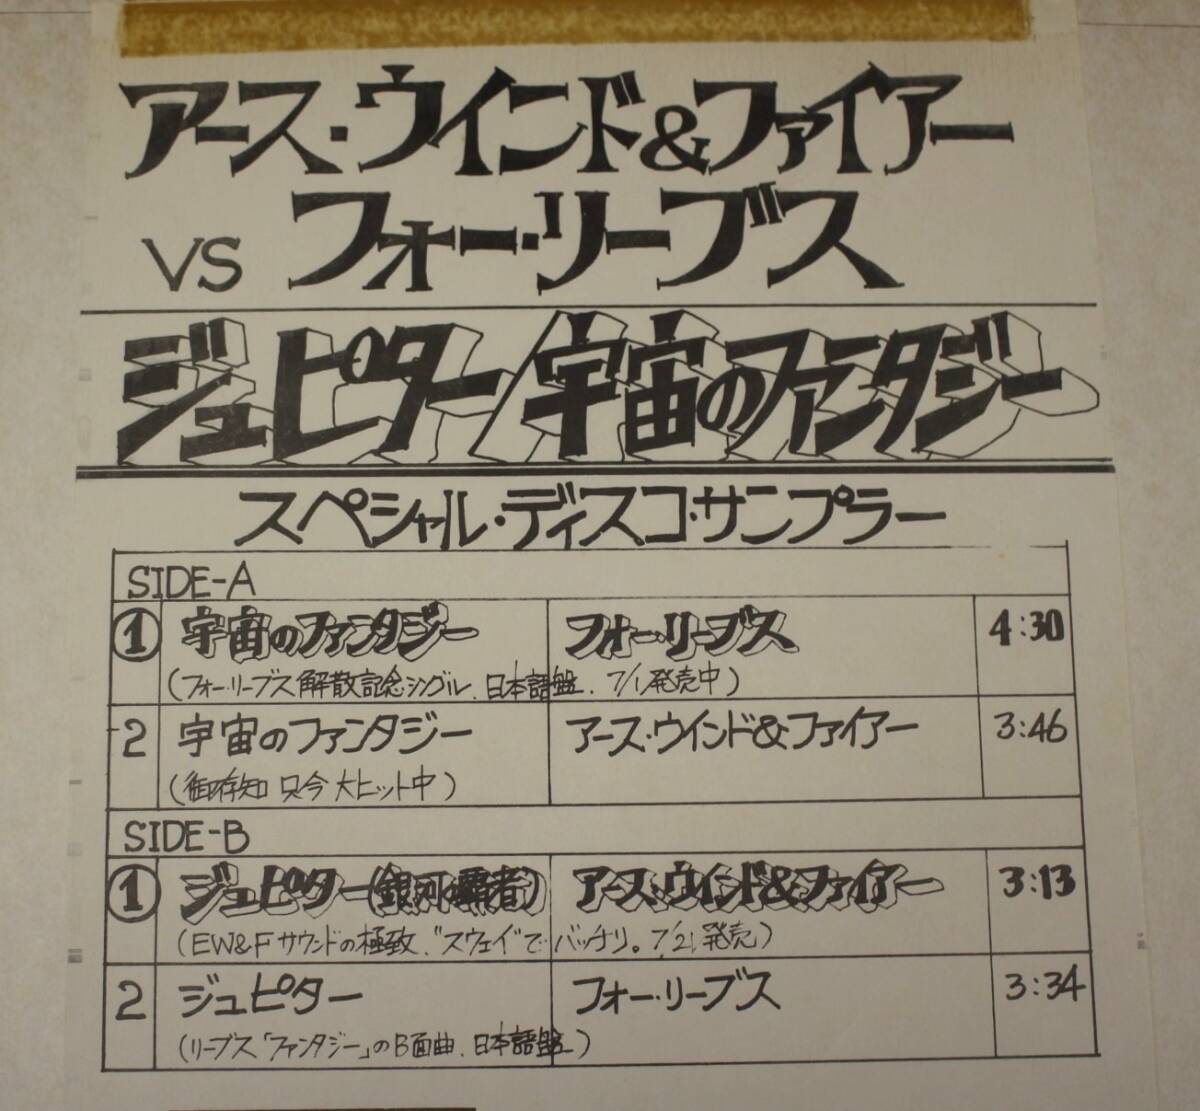 アース・ウインド&ファイアー
VS フォー・リーブス
ジュピター/宇宙のファンタジー
スペシャル・ディスコ・サンプラー
SIDE-A
① 宇宙のファンタジー フォー・リーブス 4:30
(フォー・リーブス解散記念シングル、日本語盤、7/1発売中)
2 宇宙のファンタジー アース・ウインド&ファイアー 3:46
(御存知 只今 大ヒット中)
SIDE-B
① ジュピター(銀河の覇者) アース・ウインド&ファイアー 3:13
(EW&Fサウンドの極致、"スウェイ"でバッチリ。7/21発売)
2 ジュピター フォー・リーブス 3:34
(リーブス「ファンタジー」のB面曲、日本語盤)